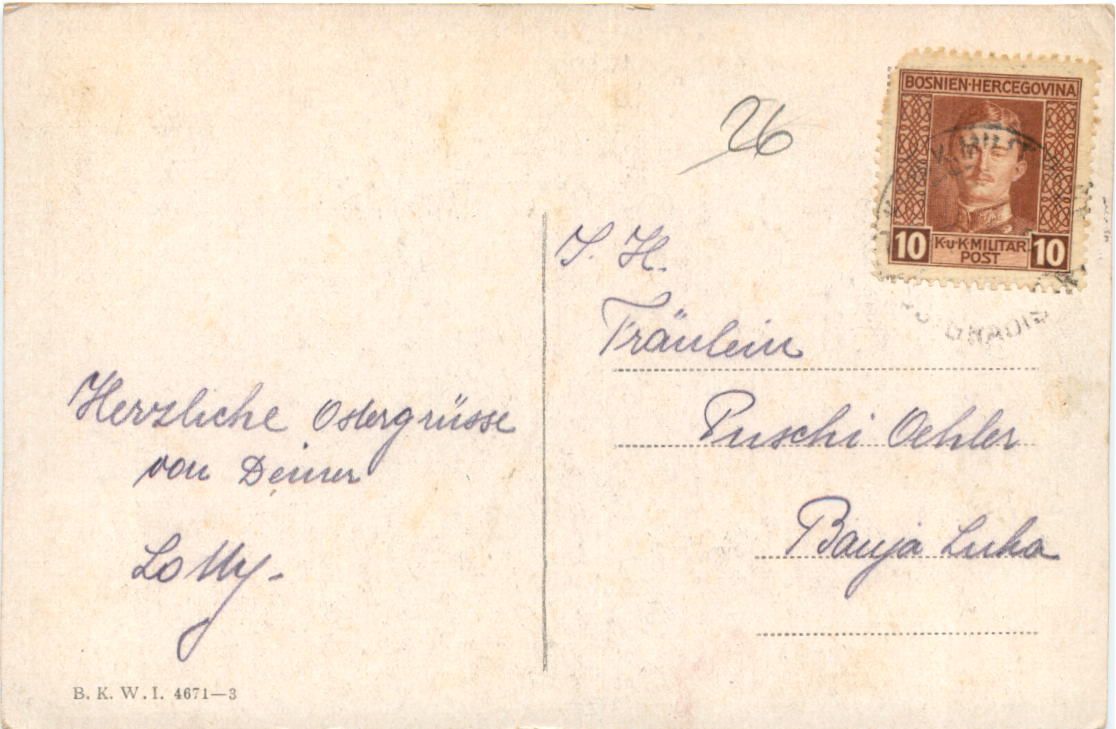 26
BOSNIEN-HERCEGOVINA
10 K.u.K.MILITÄR 10
POST
Fräulein
Puschi Oehler
Banja Luka
Herzliche Ostergrüsse
von Deiner
Lotty.
B. K. W. I. 4671—3